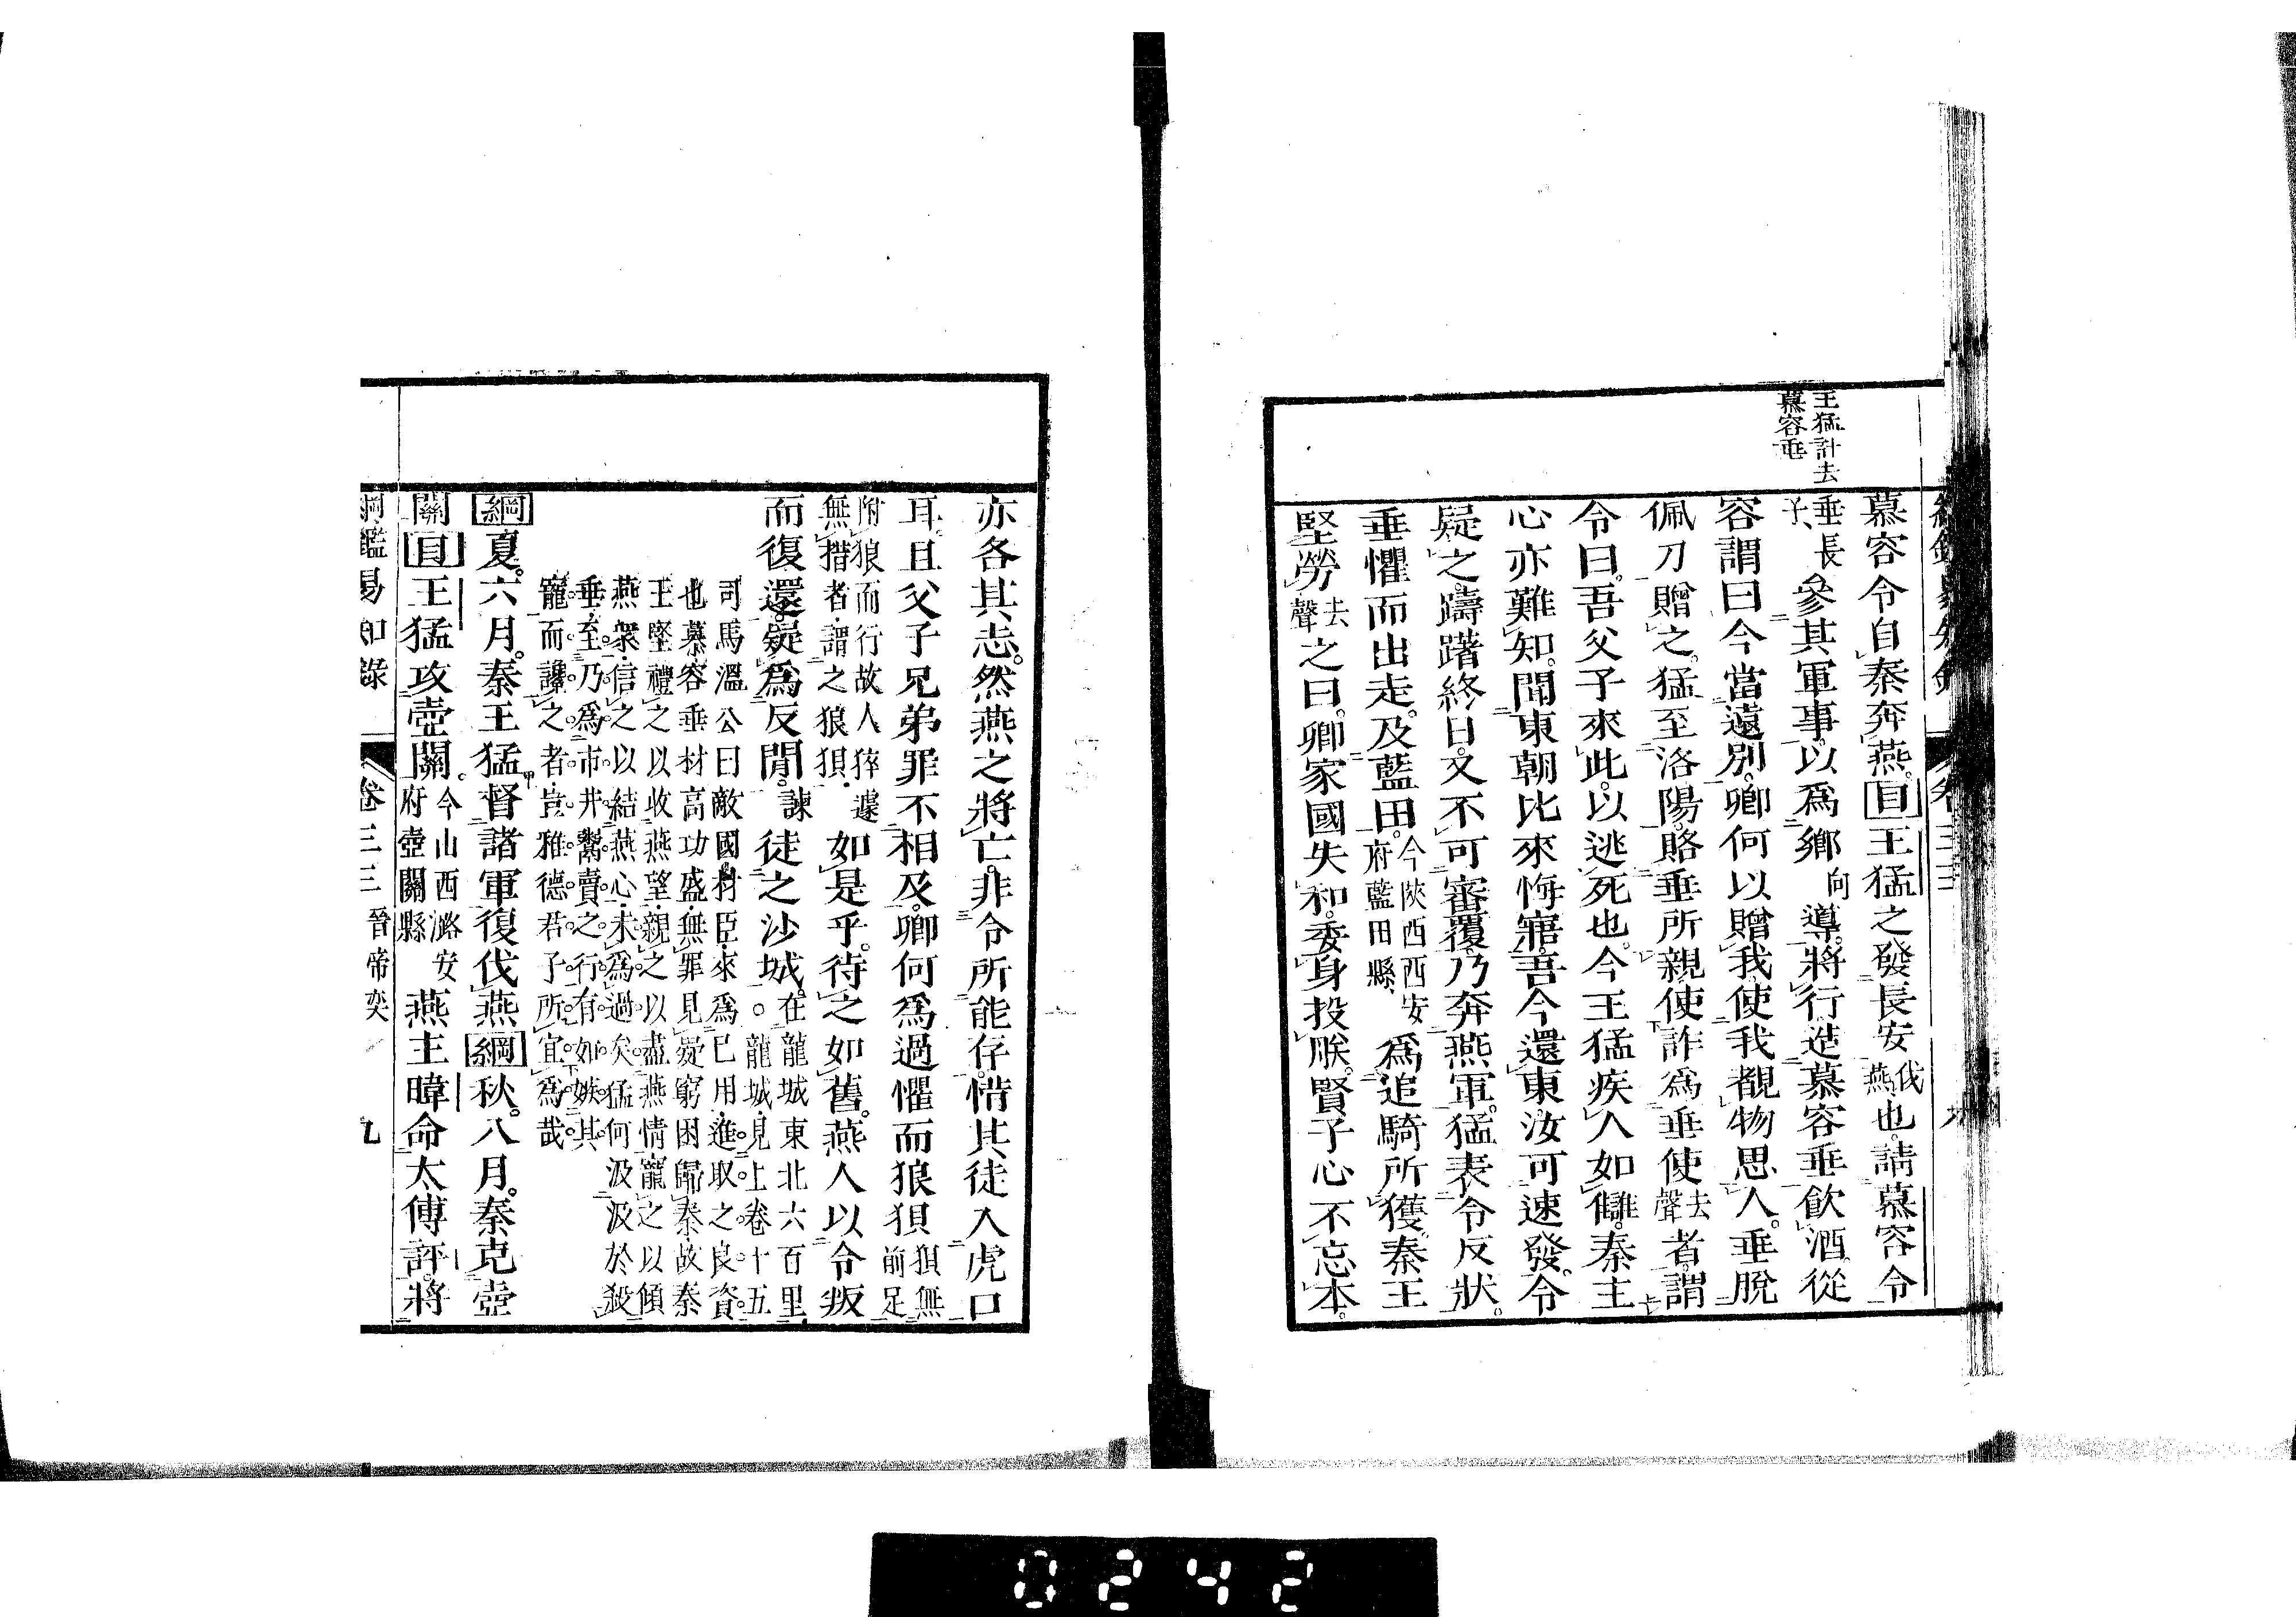 王猛計去
慕容垂
慕容令自秦奔燕。目王猛之發長安伐燕也。請慕容令
垂長子、參其軍事。以爲鄉向導。將行造慕容垂飲酒。從
容謂曰今當遠別。卿何以贈我使我覩物思人。垂脫
佩刀贈之。猛至洛陽。賂垂所親使詐爲垂使去聲者。謂
令曰。吾父子來此。以逃死也。今王猛疾人如讎。秦王
心亦難知。聞東朝比來悔寤。吾今還東。汝可速發。令
疑之躊躇終日。又不可審覆。乃奔燕軍。猛表令反狀。
垂懼而出走。及藍田。今陝西西安府藍田縣、爲追騎所獲。秦王
堅勞去聲之曰。卿家國失和。委身投朕。賢子心不忘本。
亦各其志。然燕之將亡。非令所能存。惜其徒入虎口
耳。且父子兄弟罪不相及。卿何爲過懼而狼狽狽無前足
附狼而行故人猝遽無措者謂之狼狽如是乎。待之如舊。燕人以令叛
而復還。疑爲反閒。諫徒之沙城。在龍城東北六百里。龍城見上卷十五
司馬溫公曰敵國材臣來爲己用進取之良資
也慕容垂材高功盛無罪見疑窮困歸秦故秦
王堅禮之以收燕望親之以盡燕情寵之以傾
燕衆信之以結燕心未爲過矣猛何汲汲於殺
垂至乃爲市井鬻賣之行有如嫉其
寵而讒之者豈雅德君子所宜爲哉
綱夏。六月。秦王猛督諸軍復伐燕綱秋。八月。秦克壺
關目王猛攻壺關。今山西潞安府壺關縣燕主暐命太傅評。將
綱鑑易知錄　卷三三　晉帝奕　九